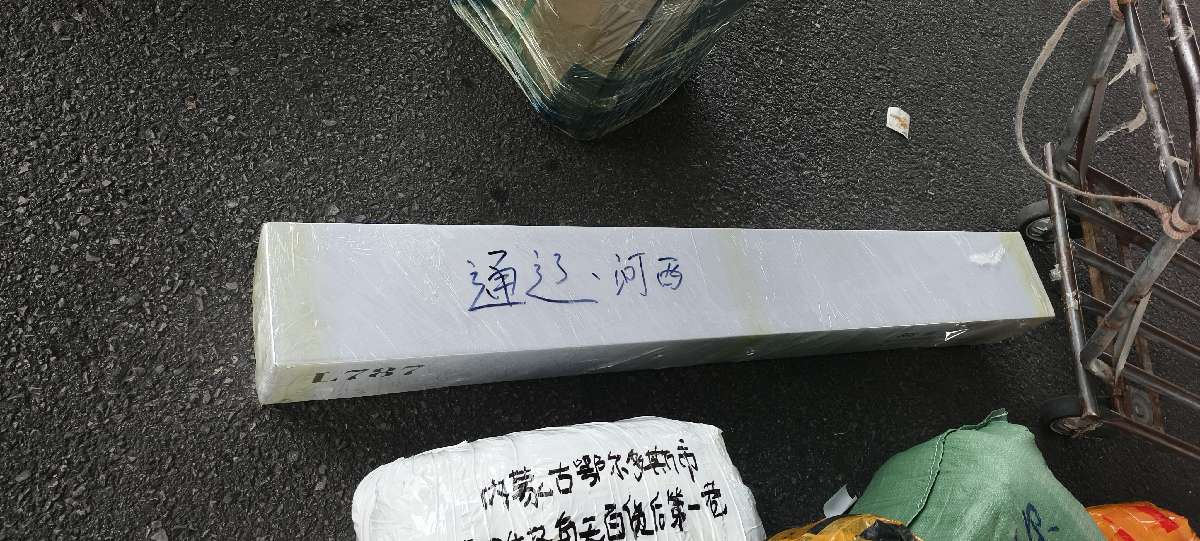 通辽、河西
L787
内蒙古鄂尔多斯市
百货后第一巷